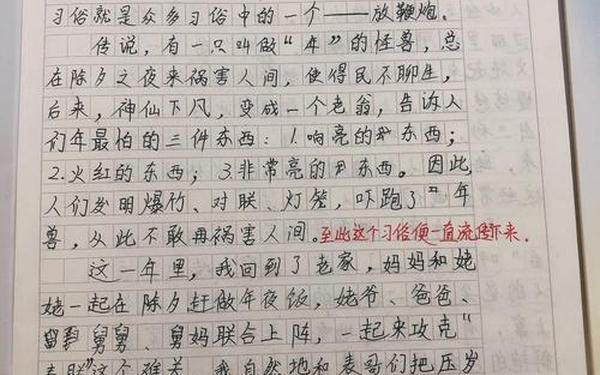 习俗就是众多习俗中的一个——放鞭炮。
传说，有一只叫做“年”的怪兽，总
在除夕之夜来祸害人间，使得民不聊生，
后来，神仙下凡，变成一个老翁，告诉人
们年最怕的三件东西：1.响亮的东西；
2.火红的东西；3.非常亮的东西。因此，
人们发明爆竹、对联、灯笼，吓跑了“年
兽，从此不敢再祸害人间。至此这个习俗便一直流传下来。
这一年里，我回到了老家，妈妈和姥
姥一起在除夕赶做年夜饭，姥爷、爸爸、
舅舅、舅妈联合上阵，一起来攻克“
春联”这个难关，我自然地和表哥们把压岁